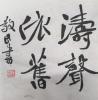 濤聲
依舊